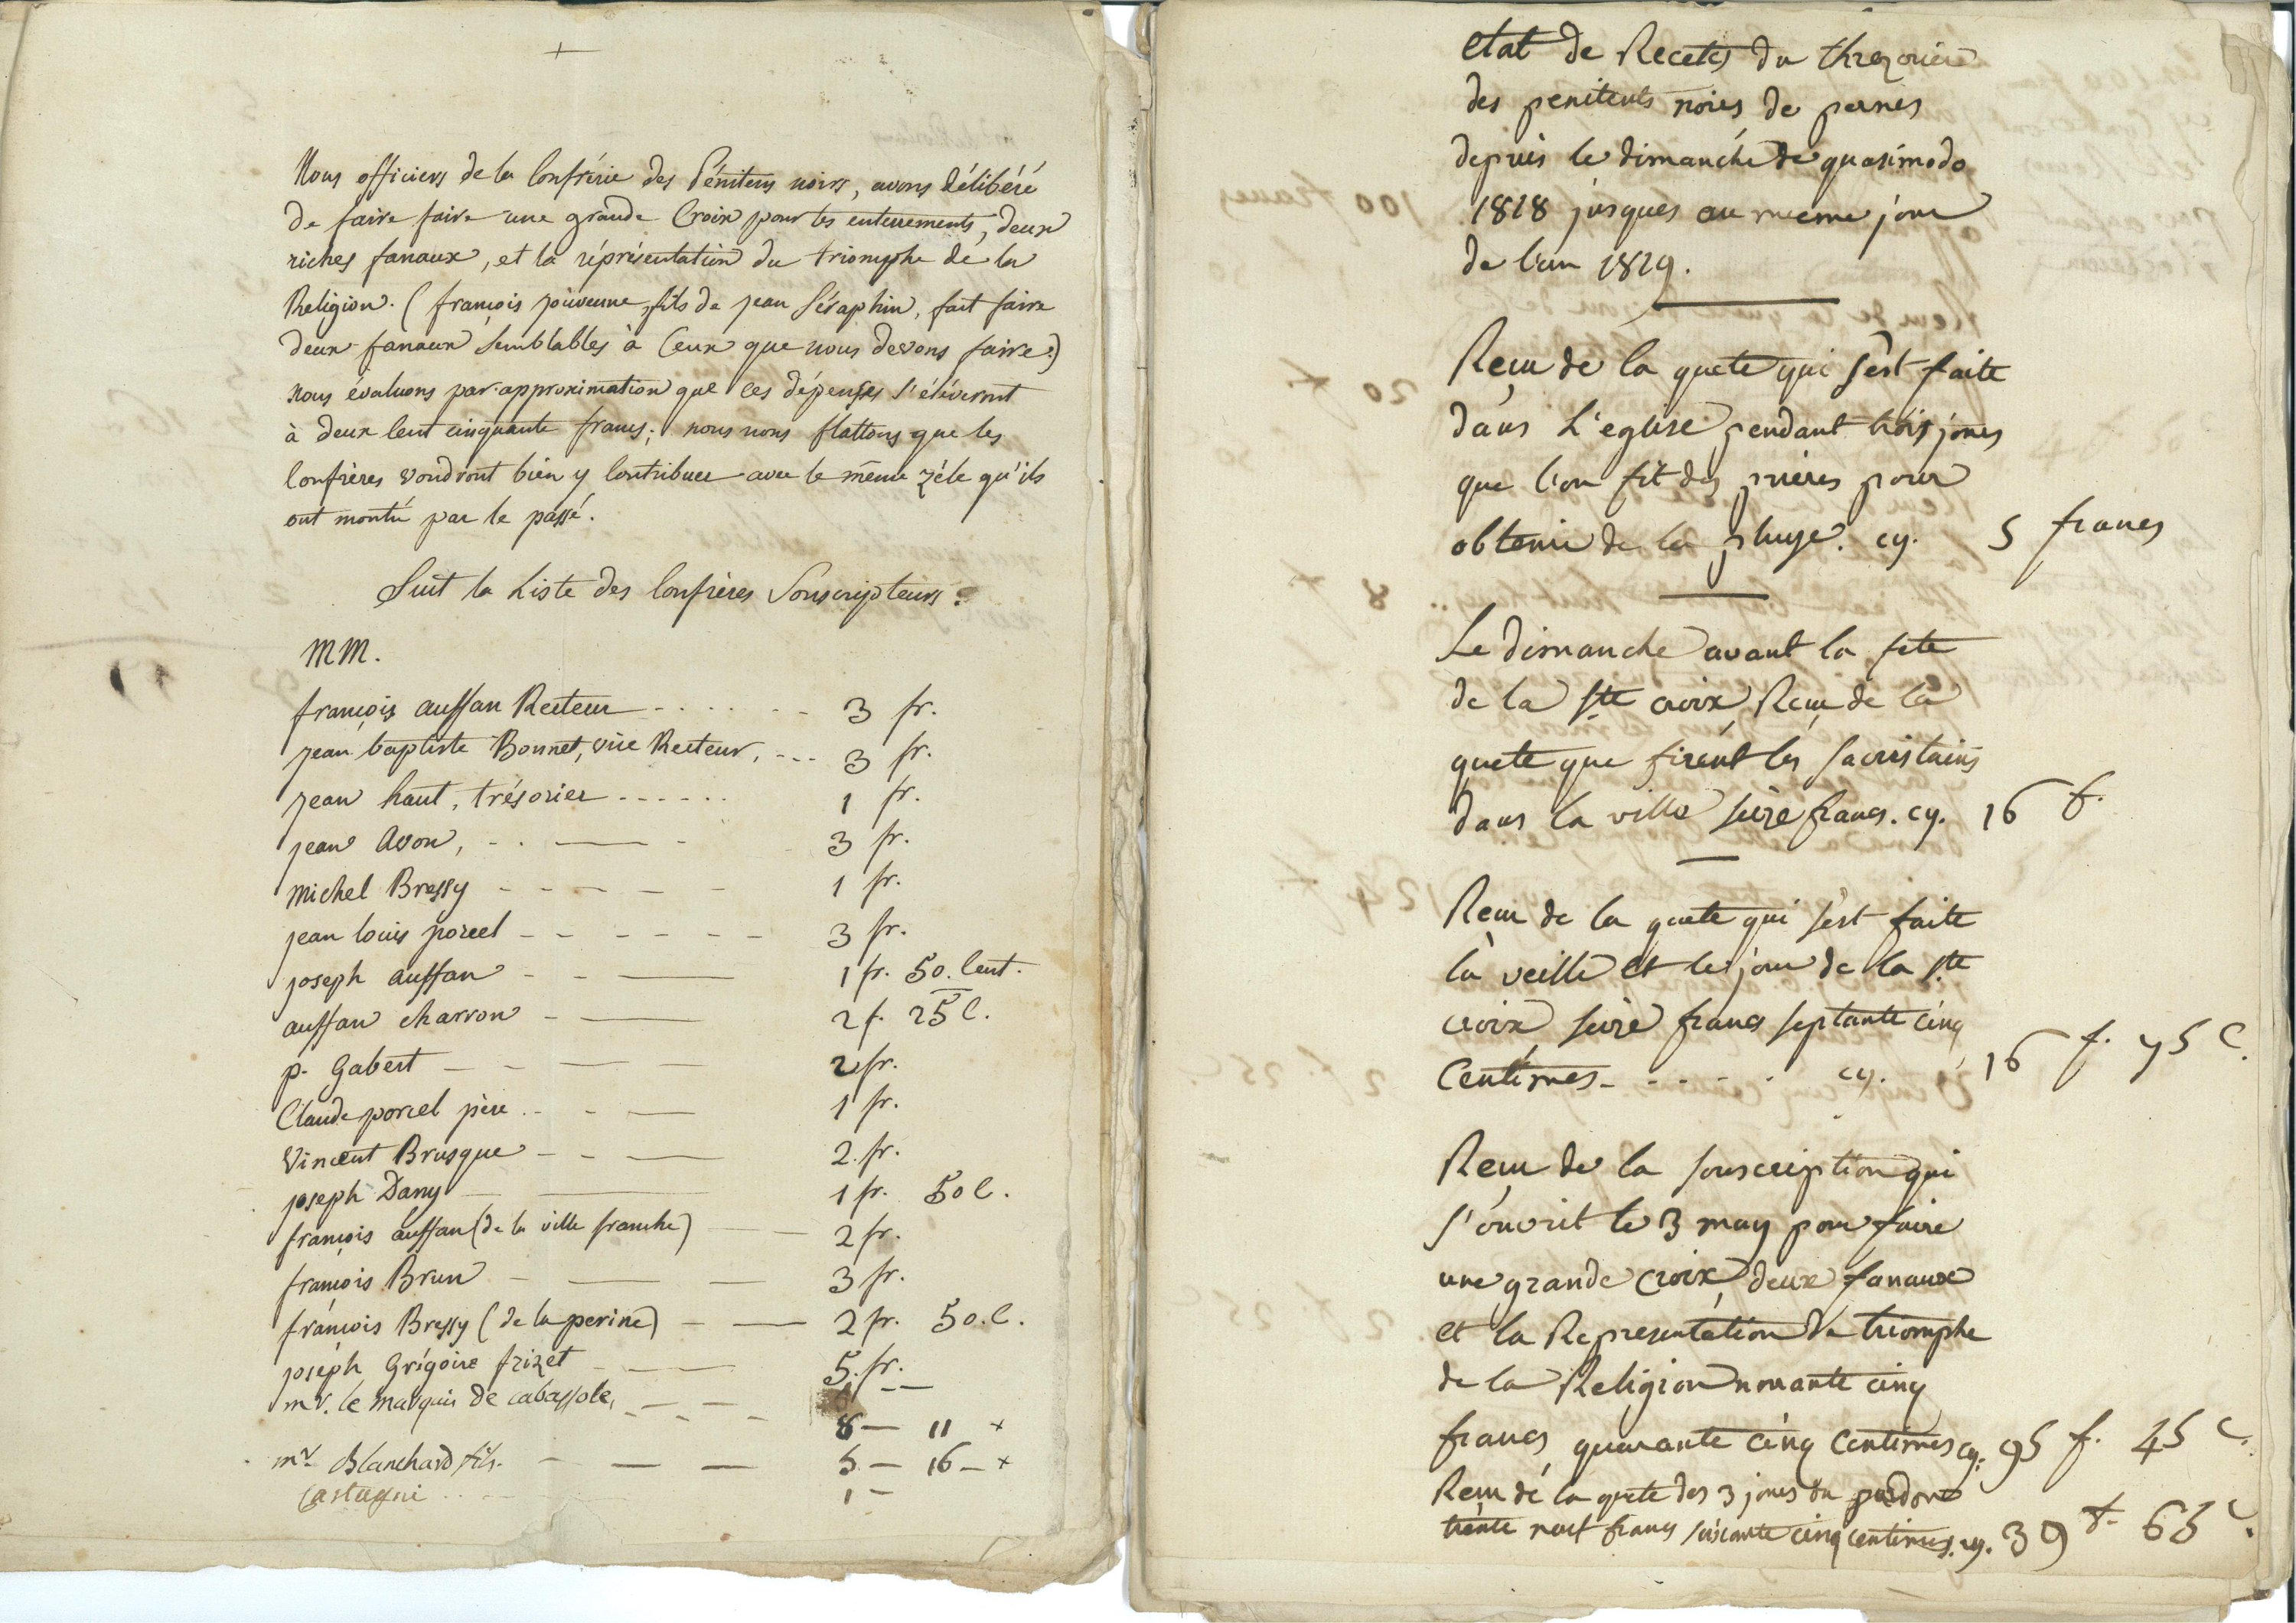 Nous officiers de la Confrérie des Pénitens noirs, avons délibéré
de faire faire une grande Croix pour les enterrements, deux
riches fanaux, et la réprésentation du triomphe de la
Religion. (françois jouvenne, fils de jean Séraphin, fait faire
deux fanaux semblables à Ceux que nous devons faire.)
nous évaluons par approximation que ces dépenses s'éléveront
à deux Cent cinquante francs; nous nous flattons que les
Confrères voudront bien y Contribuer avec le même zéle qu'ils
ont montré par le passé.
Suit la Liste des Confrères Souscripteurs.
MM.
françois auffan Recteur 3 fr.
jean baptiste Bonnet, vice Recteur, 3 fr.
jean haut, trésorier 1 fr.
jean Avon, 3 fr.
michel Bressy 1 fr.
jean louis porcel 3 fr.
joseph auffan 1 fr. 50. Cent.
auffan charron 2 f. 25 C.
p. Gabert 2 fr.
Claude porcel père 1 fr.
Vincent Brusque 2. fr.
joseph Dany 1 fr. 50 C.
françois auffan (de la ville franche) 2 fr.
françois Brun 3 fr.
françois Bressy (de la perine) 2 fr. 50. C.
joseph Grégoire frizet 5. fr.
mr. le marquis de cabassole,
8 — 11 +
mr. Blanchard fils. 5 — 16 — +
Castagni 1 —
etat de Recetes du threzorier
des penitents noirs de pernes
depuis le dimanche de quasimodo
1818 jusques au meme jour
de l'an 1819.
Reçu de la quete qui s'est faite
dans L'eglise pendant trois jours
que l'on fit des prieres pour
obtenir de la pluye. cy. 5 francs
Le dimanche avant la fete
de la ste croix Reçu de la
quete que firent les sacristains
dans la ville seize francs. cy. 16 f.
Recu de la quete qui s'est faite
la veille et le jour de la ste
croix seize francs septante cinq
Centimes - - - - - cy. 16 f. 75 C.
Reçu de la souscription qui
s'ouvrit le 3 may pour faire
une grande croix, deux fanaux
et la Representation du triomphe
de la Religion nonante cinq
francs quarante cinq Centimes cy. 95 f. 45 C.
Reçu de la quete des 3 jours du pardon
trente neuf francs soixante cinq centimes. cy. 39 f. 65 C.